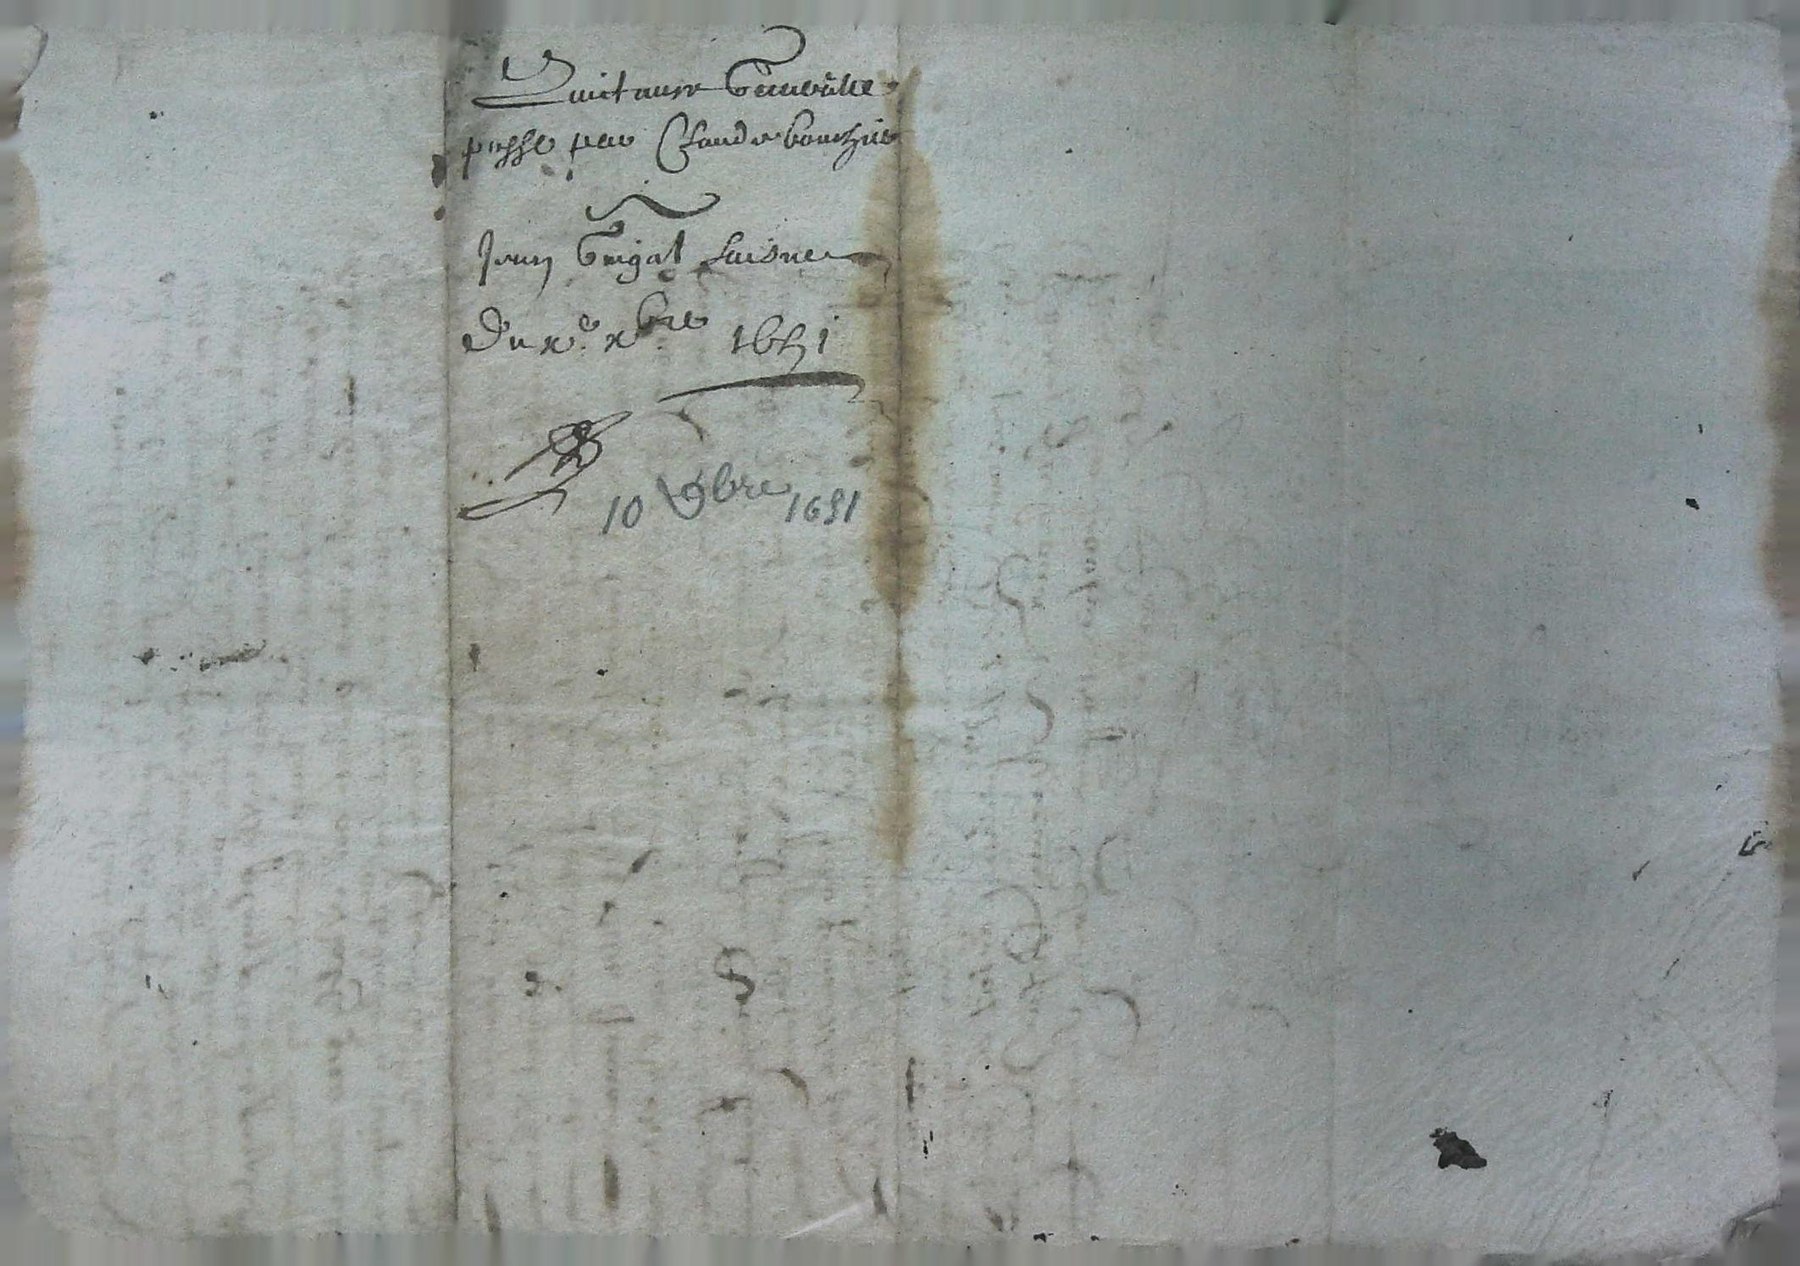 Quictance Generalle
passe par Claude bouchie
Jean Grigat Laisne
Du xe xbre 1651
10 Xbre 1651